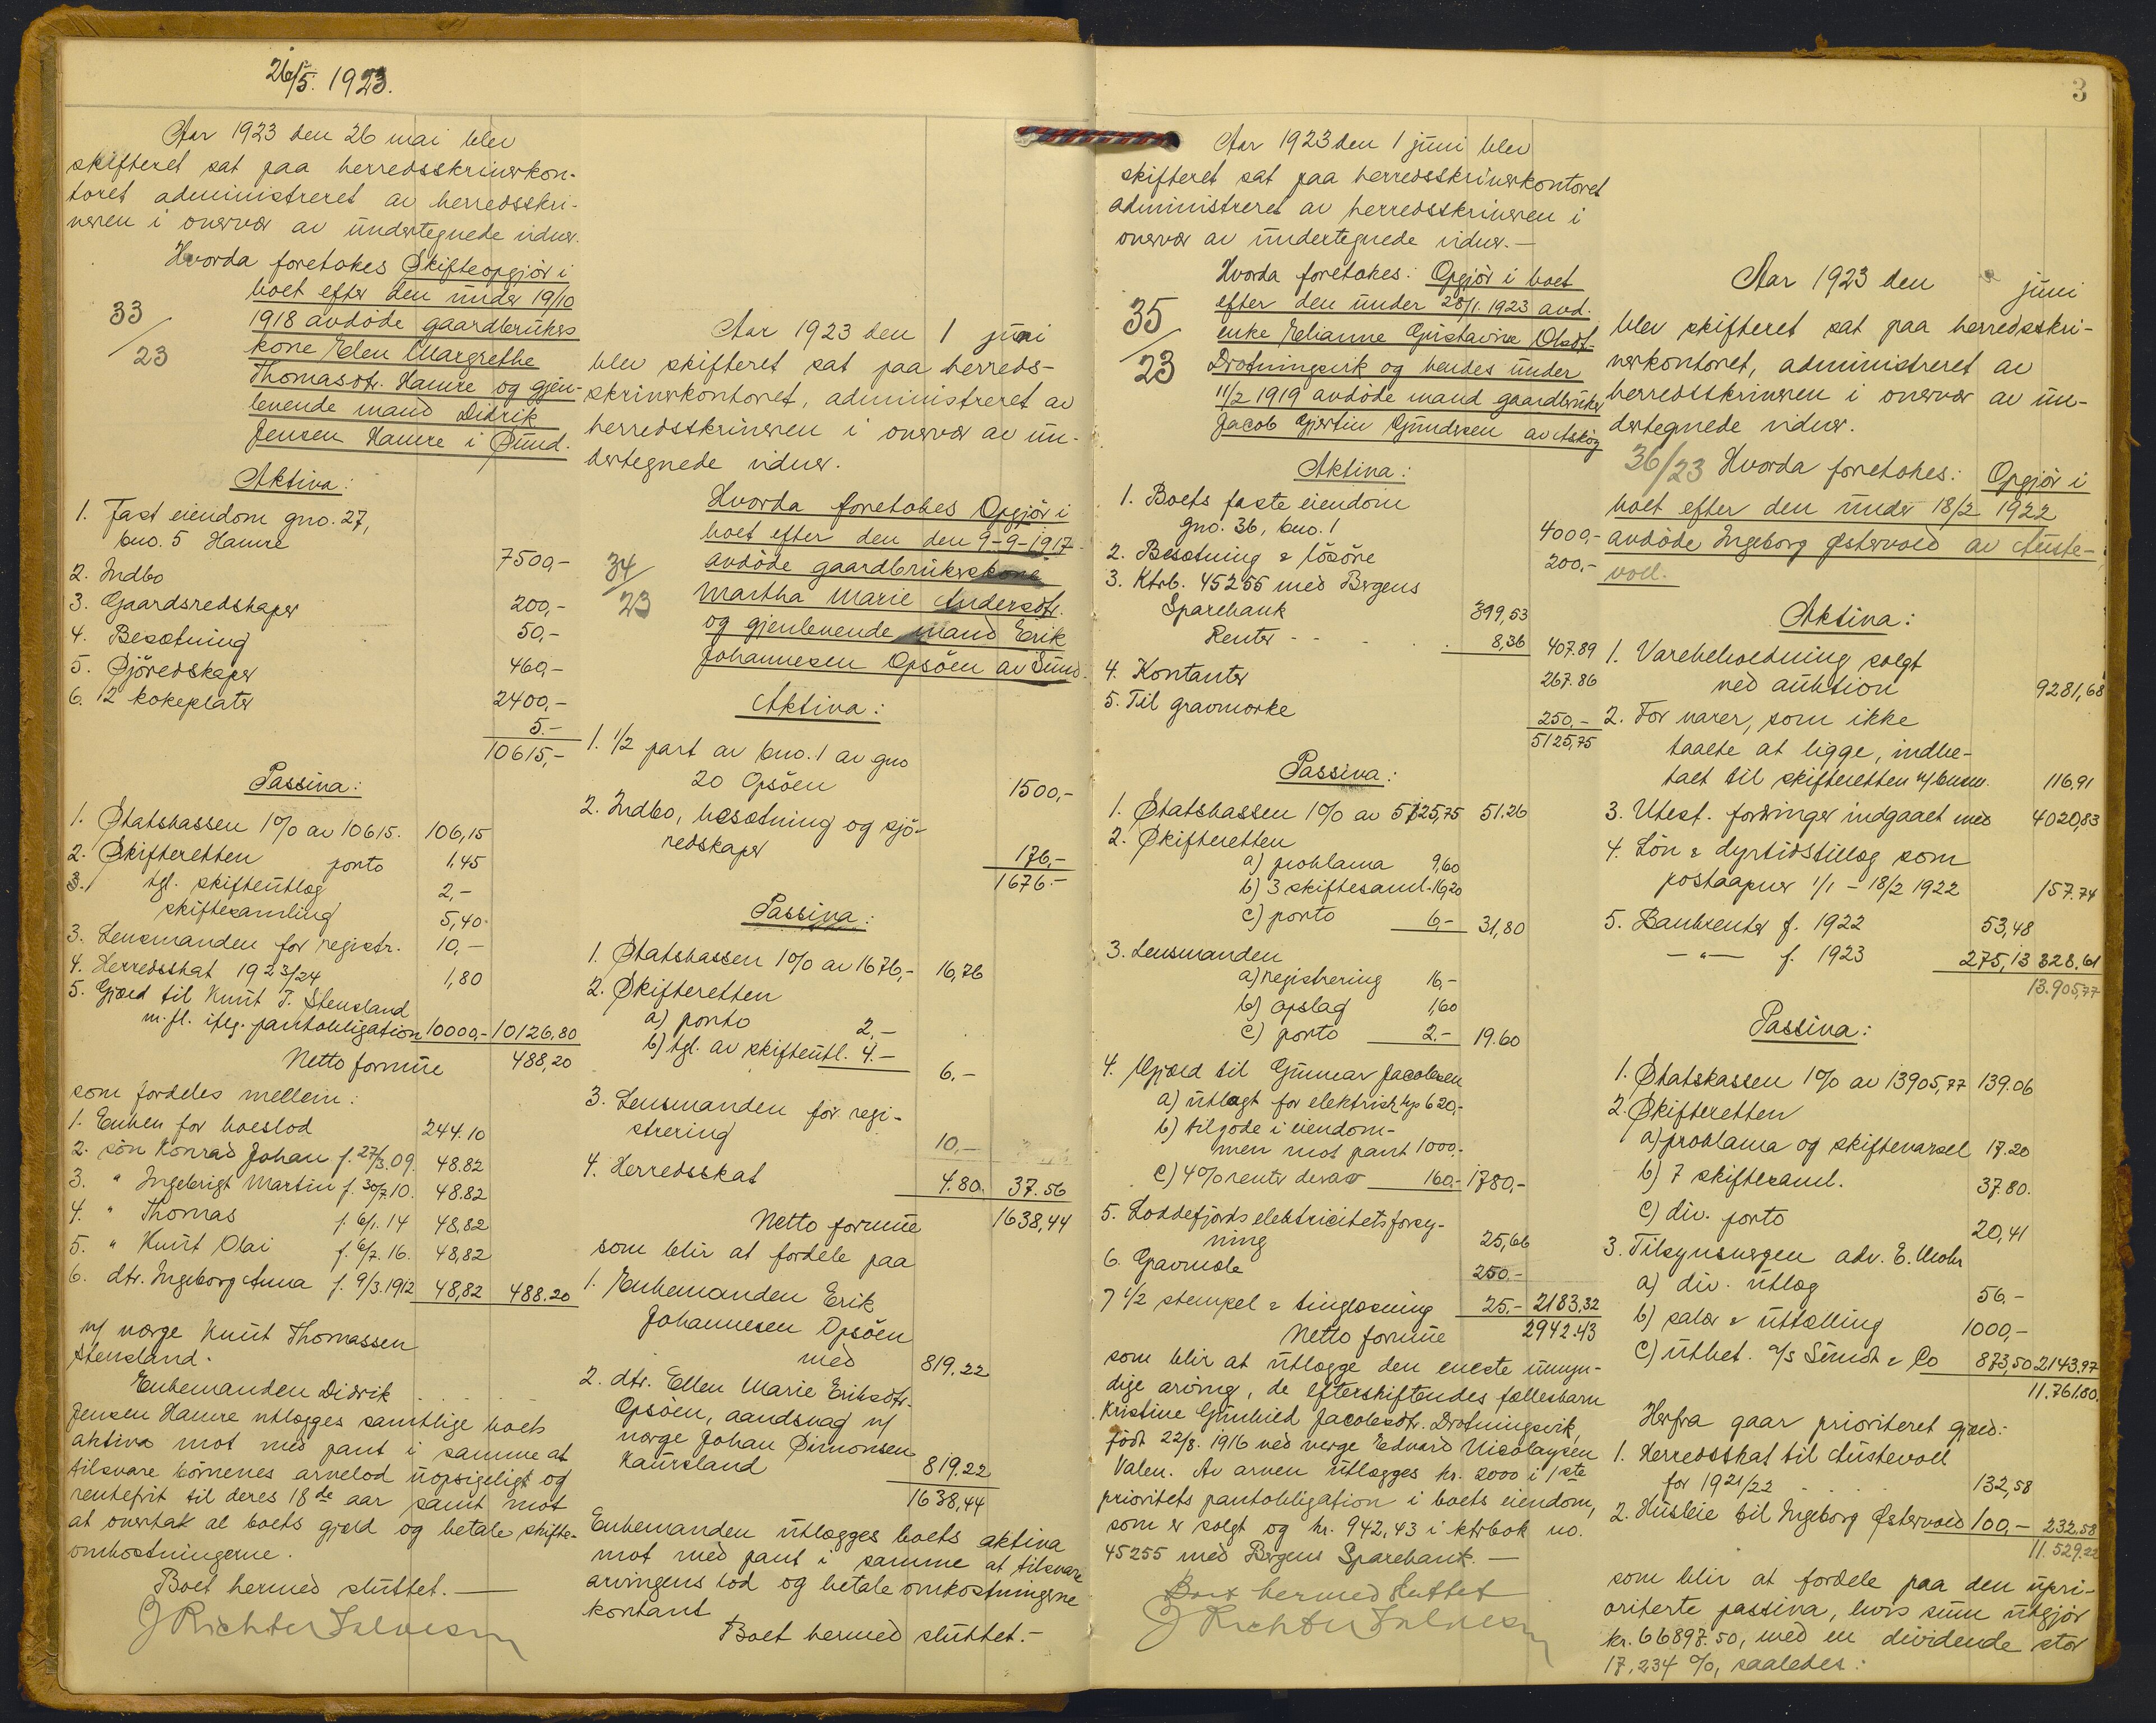 26/5. 1923.
Aar 1923 den 26 mai blev
skifteret sat paa herredsskriverkon-
toret administreret av herredsskri-
veren i overvær av undertegnede vidner.
Hvorda foretokes Skifteopgjör i
boet efter den under 19/10
1918 avdöde gaardbrukers
kone Elen Margrethe
Thomasdtr. Hamre og gjen-
levende mand Didrik
Jensen Hamre i Sund.
33/23
Aktiva:
1. Fast eiendom gno. 27,
bno. 5 Hamre 7500,-
2. Indbo 200,-
3. Gaardsredskaper 50,-
4. Besætning 460,-
5. Sjöredskaper 2400,-
6. 12 kokeplater 5.-
10615,-
Passiva:
1. Statskassen 1% av 10615. 106,15
2. Skifteretten porto 1,45
3. tgl. skifteutlæg 2,-
skiftesamling 5,40
3. Lensmanden for registr. 10,-
4. Herredsskat 1923/24 1,80
5. Gjæld til Knut T. Stensland
m.fl. iflg. pantobligation 10000,- 10126,80
Netto formue 488,20
som fordeles mellem:
1. Enken for boeslod 244.10
2. sön Konrad Johan f. 27/3.09. 48.82
3. " Ingebrigt Martin f. 30/7.10. 48.82
4. " Thomas f. 6/1. 14 48,82
5. " Knut Olai f. 6/7. 16. 48,82
6. dtr. Ingeborg Anna f. 9/3.1912 48,82 488.20
v/ verge Knut Thomassen
Stensland.
Enkemanden Didrik
Jensen Hamre utlægges samtlige boets
aktiva mot med pant i samme at
tilsvare börnenes arvelod uopsigeligt og
rentefrit til deres 18de aar samt mot
at overtak al boets gjæld og betale skifte-
omkostningerne.
Boet hermed sluttet.—
J Richter Salvesen
Aar 1923 den 1 juni
blev skifteret sat paa herreds-
skriverkontoret, administreret av
herredsskriveren i overvær av un-
dertegnede vidner.
Hvorda foretokes Opgjör i
boet efter den den 9-9-1917
avdöde gaardbrukerskone
Martha Marie Andersdtr.
og gjenlevende mand Erik
Johannesen Opsöen av Sund.
34/23
Aktiva:
1. 1/2 part av bno. 1 av gno
20 Opsöen 1500,-
2. Indbo, besætning og sjö-
redskaper 176,-
1676.-
Passiva:
1. Statskassen 1% av 1676,- 16,76
2. Skifteretten
a) porto 2,-
b) tgl. av skifteutl. 4.- 6,-
3. Lensmanden for regi-
strering 10,-
4. Herredsskat 4.80. 37.56
Netto formue 1638,44
som blir at fordele paa
1. Enkemanden Erik
Johannesen Opsöen
med 819.22
2. dtr. Ellen Marie Eriksdtr.
Opsöen, aandsvag v/
verge Johan Simonsen
Kausland 819.22
1638,44
Enkemanden utlægges boets aktiva
mot med pant i samme at tilsvare
arvingens lod og betale omkostningerne
kontant
Boet hermed sluttet.-
3
Aar 1923 den 1 juni blev
skifteret sat paa herredsskriverkontoret
administreret av herredsskriveren i
overvær av undertegnede vidner.—
Hvorda foretokes: Opgjör i boet
efter den under 28/1.1923 avd.
enke Elianne Gustavine Olsdt.
Drotningsvik og hendes under
11/2 1919 avdöde mand gaardbruker
Jacob Gjertin Gundersen av Askög
35/23
Aktiva:
1. Boets faste eiendom
gno. 36, bno. 1 4000,-
2. Besætning & lösöre 200,-
3. Ktrb. 45255 med Bergens
Sparebank 399,53
Renter - - 8,36 407.89
4. Kontanter 267.86
5. Til gravmærke 250,-
5125,75
Passiva:
1. Statskassen 1% av 5125,75 51.26
2. Skifteretten
a) proklama 9,60
b) 3 skiftesaml. 16,20
c) porto 6,- 31,80
3. Lensmanden
a) registrering 16,-
b) opslag 1,60
c) porto 2.- 19.60
4. Gjæld til Gunnar Jacobsen
a) utlagt for elektrisk lys 620,-
b) tilgode i eiendom-
men mot pant 1000.-
c) 4% renter derav 160.- 1780,-
5. Loddefjords elektricitetsforsy-
ning 25,66
6. Gravmæle 250.-
7 1/2 stempel & tinglæsning 25,- 2183,32
Netto formue 2942.43
som blir at utlægge den eneste umyn-
dige arving, de efterskiftendes fællesbarn
Kristine Gunhild Jacobsdtr. Drotningsvik,
född 22/8. 1916 ved verge Edvard Nicolaysen
Valen. Av arven utlægges kr. 2000 i 1ste
prioritets pantobligation i boets eiendom,
som er solgt og kr. 942,43 i ktrbok no.
45255 med Bergens Sparebank.—
Boet hermed sluttet
J Richter Salvesen
Aar 1923 den juni
blev skifteret sat paa herredsskri-
verkontoret, administreret av
herredsskriveren i overvær av un-
dertegnede vidner.
36/23 Hvorda foretokes: Opgjör i
boet efter den under 18/2 1922
avdöde Ingeborg Östervold av Auste-
voll.
Aktiva:
1. Varebeholdning solgt
ved auktion 9281,68
2. For varer, som ikke
taalte at ligge, indbe-
talt til skifteretten 116.91
3. Utest. fordringer indgaaet med 4020,83
4. Lön & dyrtidstillæg som
postaapner 1/1 - 18/2 1922 157.74
5. Bankrenter f. 1922 53,48
—"— f. 1923 275,13 328.61
13.905,77
Passiva:
1. Statskassen 1% av 13905,77 139.06
2. Skifteretten
a) proklama og skiftevarsel 17.20
b) 7 skiftesaml. 37.80.
c) div. porto 20,41
3. Tilsynsvergen adv. E. Mohr
a) div. utlæg 56.-
b) salær & utfælling 1000,-
c) utbet. a/s Sundt & Co 873,50 2143.97
11.761.80.
Herfra gaar prioriteret gjæld:
1. Herredsskat til Austevoll
for 1921/22 132,58
2. Husleie til Ingeborg Östervold 100,- 232.58
11.529.22
som blir at fordele paa den upri-
oriterte passiva, hvis sum utgjör
kr. 66897.50, med en dividende stor
17,234 %, saaledes: